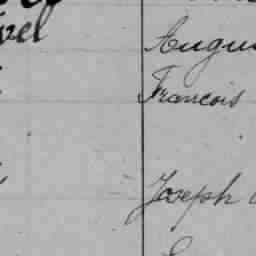 vel
Augu
Francois
Joseph